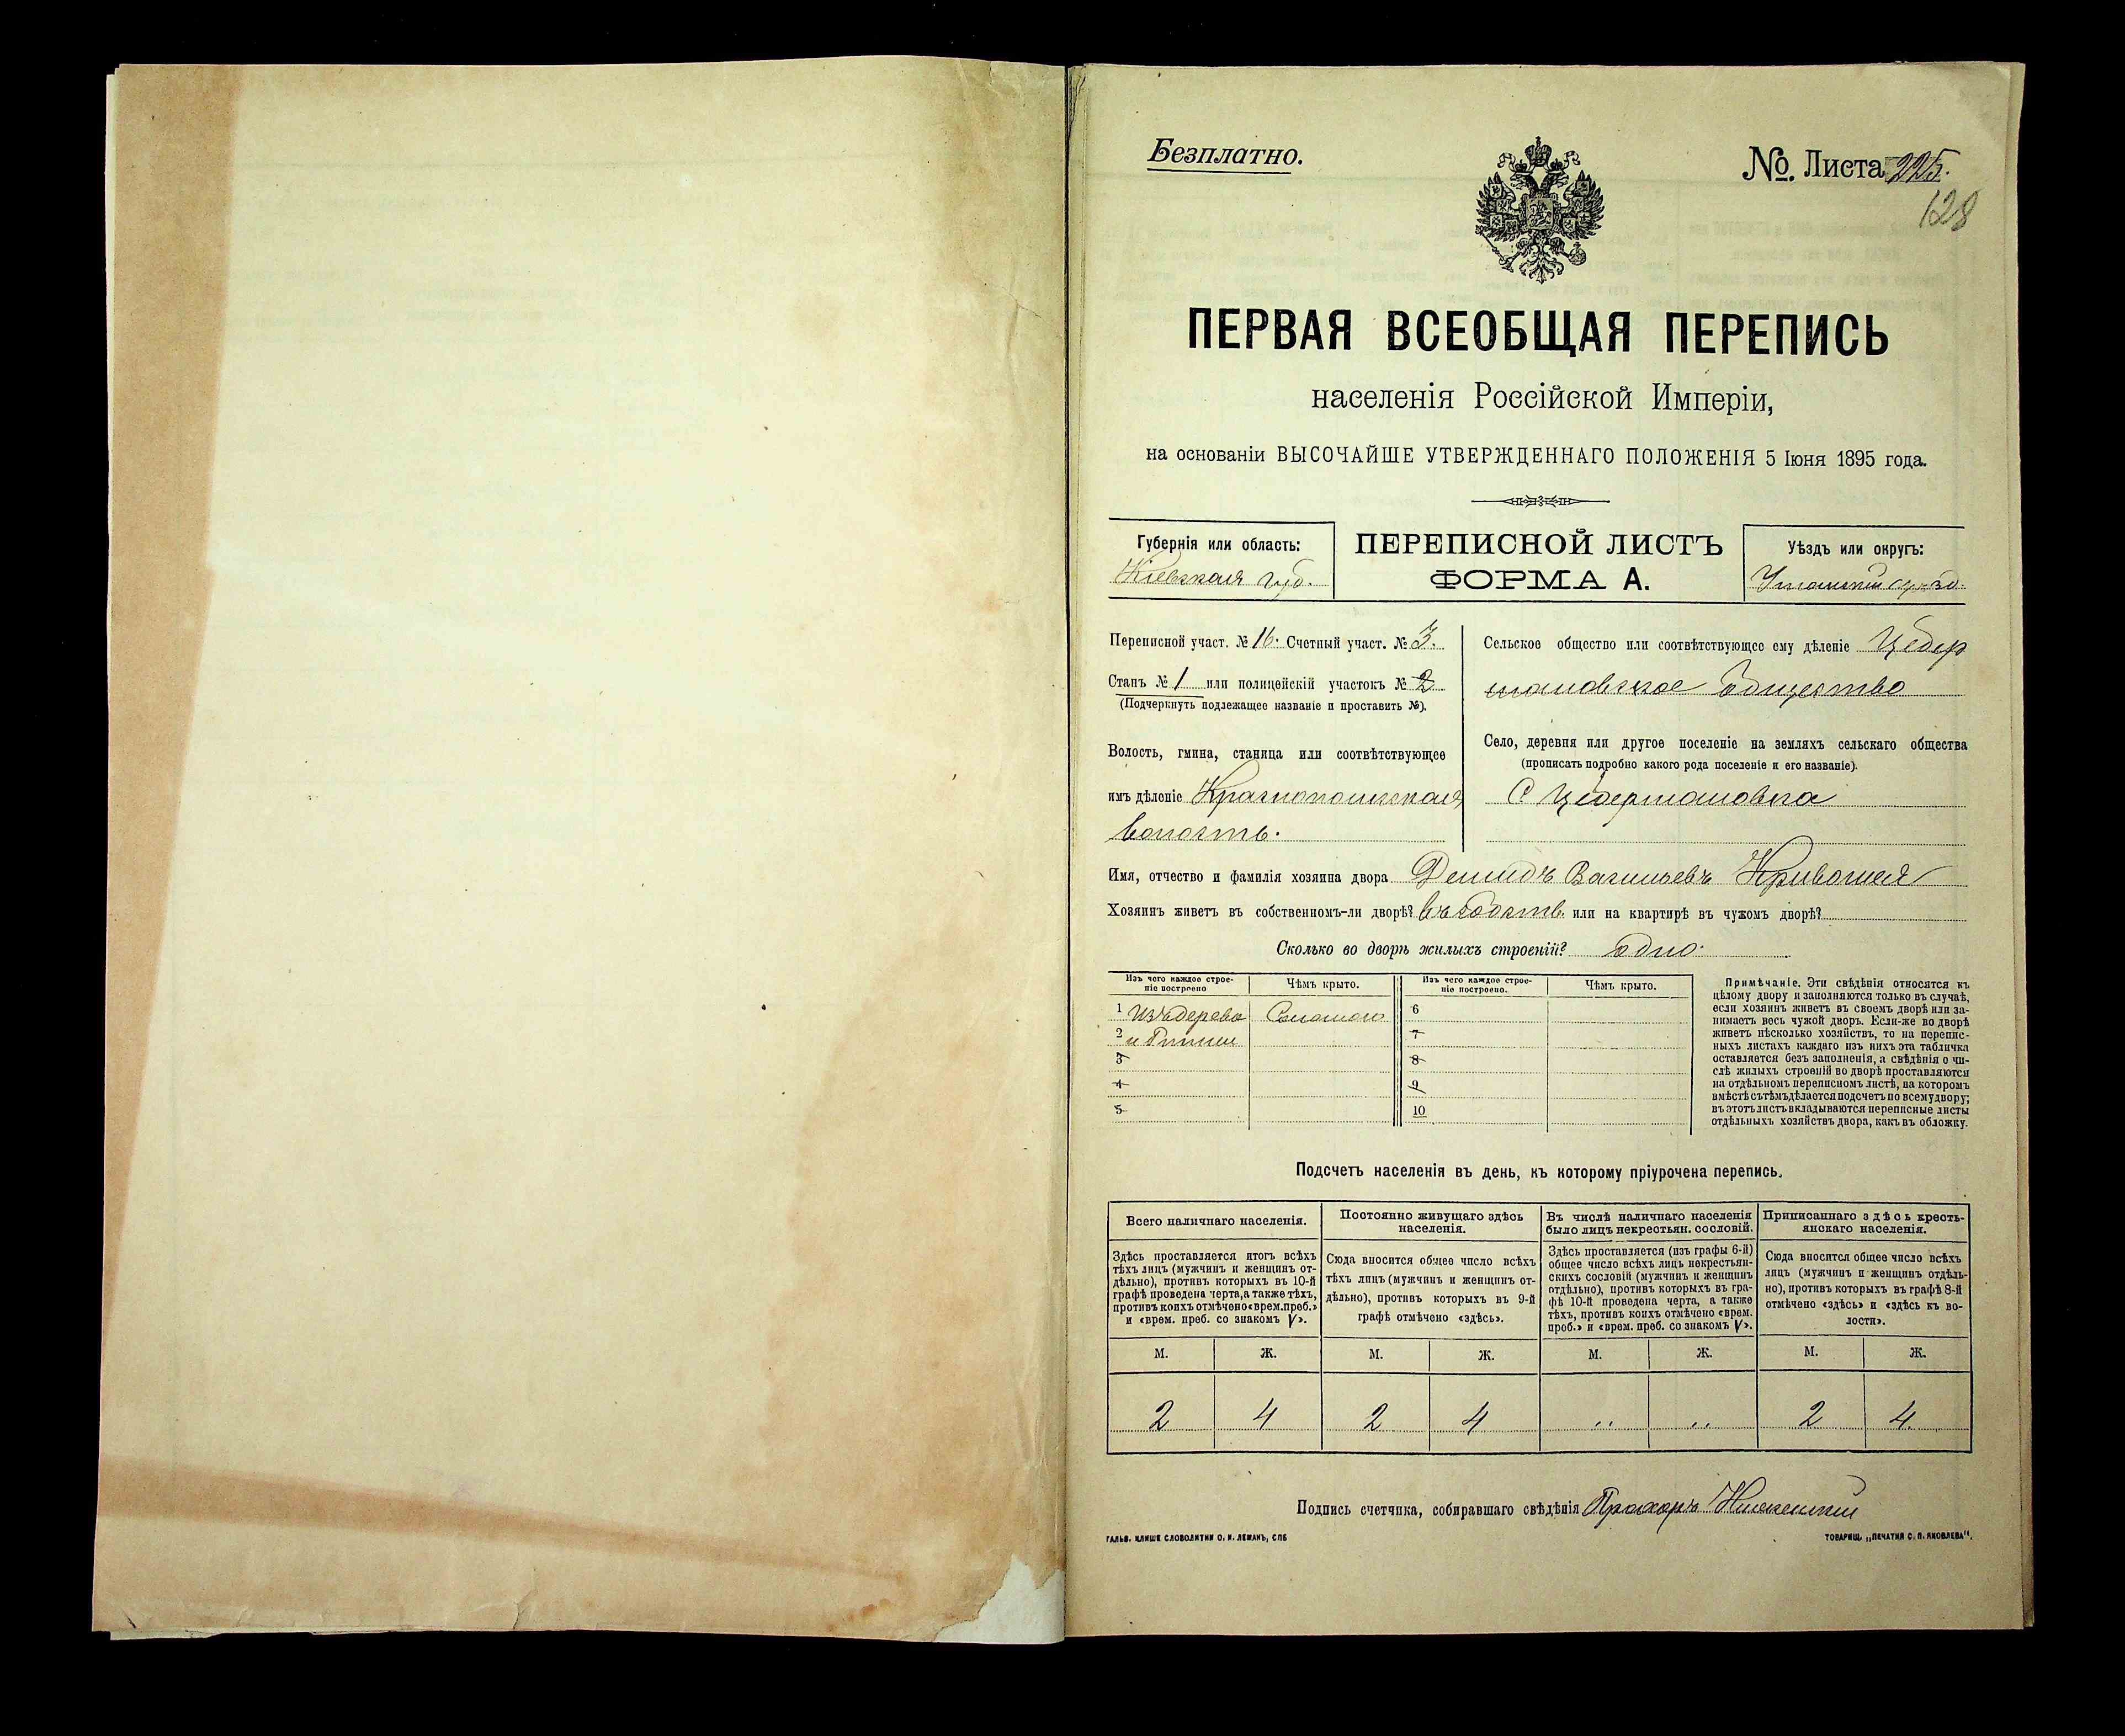 Безплатно.
№. Листа 225.
128
ПЕРВАЯ ВСЕОБЩАЯ ПЕРЕПИСЬ
населенія Россійской Имперіи,
на основаніи ВЫСОЧАЙШЕ УТВЕРЖДЕННАГО ПОЛОЖЕНІЯ 5 Іюня 1895 года.
Губернія или область:
Кіевская губ.
ПЕРЕПИСНОЙ ЛИСТЪ
ФОРМА А.
Уѣздъ или округъ:
Уманскій уѣзд.
Переписной участ. № 16. Счетный участ. № 3.
Станъ № 1 или полицейскій участокъ № 2
(Подчеркнуть подлежащее названіе и проставить №).
Волость, гмина, станица или соотвѣтствующее
имъ дѣленіе Краснопольская
волость.
Сельское общество или соотвѣтствующее ему дѣленіе Цебер
мановское Общество
Село, деревня или другое поселеніе на земляхъ сельскаго общества
(прописать подробно какого рода поселеніе и его названіе).
С Цебермановка
Имя, отчество и фамилія хозяина двора Демидъ Васильевъ Кривошея
Хозяинъ живетъ въ собственномъ-ли дворѣ? въ собств. или на квартирѣ въ чужомъ дворѣ?
Сколько во дворѣ жилыхъ строеній? одно.
Изъ чего каждое строе-
ніе построено
Чѣмъ крыто.
Изъ чего каждое строе-
ніе построено.
Чѣмъ крыто.
1 Изъ дерева Соломою 6
2 и Глины 7
3 8
4 9
5 10
Примѣчаніе. Эти свѣдѣнія относятся къ
цѣлому двору и заполняются только въ случаѣ,
если хозяинъ живетъ въ своемъ дворѣ или за-
нимаетъ весь чужой дворъ. Если-же во дворѣ
живетъ нѣсколько хозяйствъ, то на перепис-
ныхъ листахъ каждаго изъ нихъ эта табличка
оставляется безъ заполненія, а свѣдѣнія о чи-
слѣ жилыхъ строеній во дворѣ проставляются
на отдѣльномъ переписномъ листѣ, на которомъ
вмѣстѣ съ тѣмъ дѣлается подсчетъ по всему двору;
въ этотъ листъ вкладываются переписные листы
отдѣльныхъ хозяйствъ двора, какъ въ обложку.
Подсчетъ населенія въ день, къ которому пріурочена перепись.
Всего наличнаго населенія.
Здѣсь проставляется итогъ всѣхъ
тѣхъ лицъ (мужчинъ и женщинъ от-
дѣльно), противъ которыхъ въ 10-й
графѣ проведена черта, а также тѣхъ,
противъ коихъ отмѣчено «врем. преб.»
и «врем. преб. со знакомъ V».
Постоянно живущаго здѣсь
населенія.
Сюда вносится общее число всѣхъ
тѣхъ лицъ (мужчинъ и женщинъ от-
дѣльно), противъ которыхъ въ 9-й
графѣ отмѣчено «здѣсь».
Въ числѣ наличнаго населенія
было лицъ некрестьян. сословій.
Здѣсь проставляется (изъ графы 6-й)
общее число всѣхъ лицъ некрестьян-
скихъ сословій (мужчинъ и женщинъ
отдѣльно), противъ которыхъ въ гра-
фѣ 10-й проведена черта, а также
тѣхъ, противъ коихъ отмѣчено «врем.
преб.» и «врем. преб. со знакомъ V».
Приписаннаго здѣсь кресть-
янскаго населенія.
Сюда вносится общее число всѣхъ
лицъ (мужчинъ и женщинъ отдѣль-
но), противъ которыхъ въ графѣ 8-й
отмѣчено «здѣсь» и «здѣсь къ во-
лости».
М. Ж. М. Ж. М. Ж. М. Ж.
2 4 2 4 „ „ 2 4
Подпись счетчика, собиравшаго свѣдѣнія Прохоръ
ГАЛЬВ. КЛИШЕ СЛОВОЛИТНИ О. И. ЛЕМАНЪ, СПБ
ТОВАРИЩ. „ПЕЧАТНЯ С. П. ЯКОВЛЕВА".